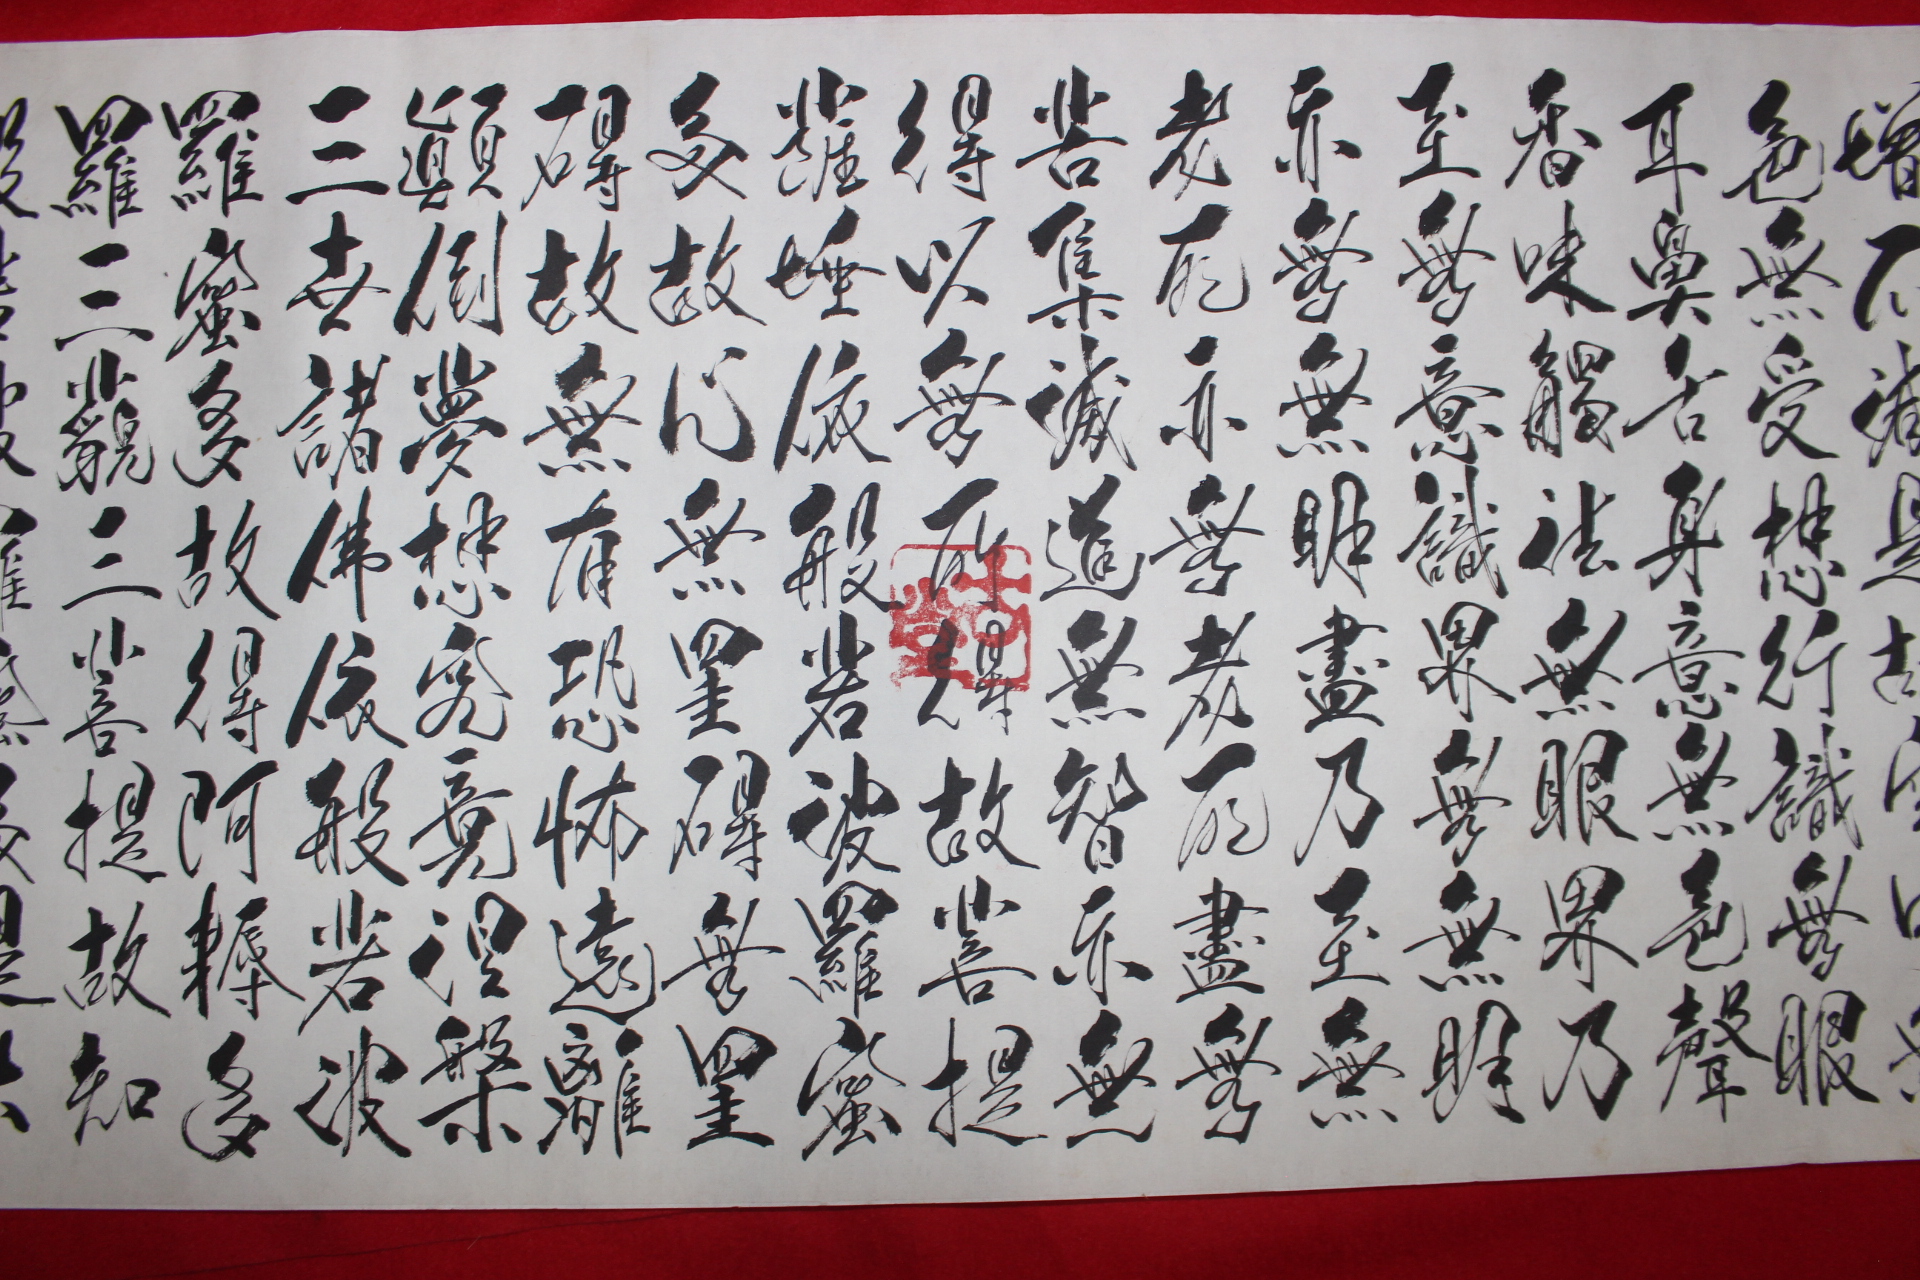 增不減是故空中無
色無受想行識無眼
耳鼻舌身意無色聲
香味觸法無眼界乃
至無意識界無無明
亦無無明盡乃至無
老死亦無老死盡無
苦集滅道無智亦無
得以無所得故菩提
薩埵依般若波羅蜜
多故心無罣碍無罣
碍故無有恐怖遠離
顛倒夢想究竟涅槃
三世諸佛依般若波
羅蜜多故得阿耨多
羅三藐三菩提故知
般若波羅蜜多是大